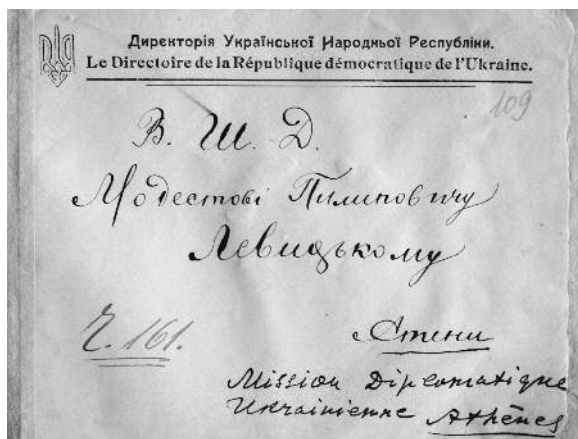 Директорія Української Народньої Республіки.
Le Directoire de la République démocratique de l'Ukraine.
109
В. Ш. Д.
Модестові Пилиповичу
Левицькому
Ч. 161.
Атени
Mission Diplomatique
Ukrainienne Athènes